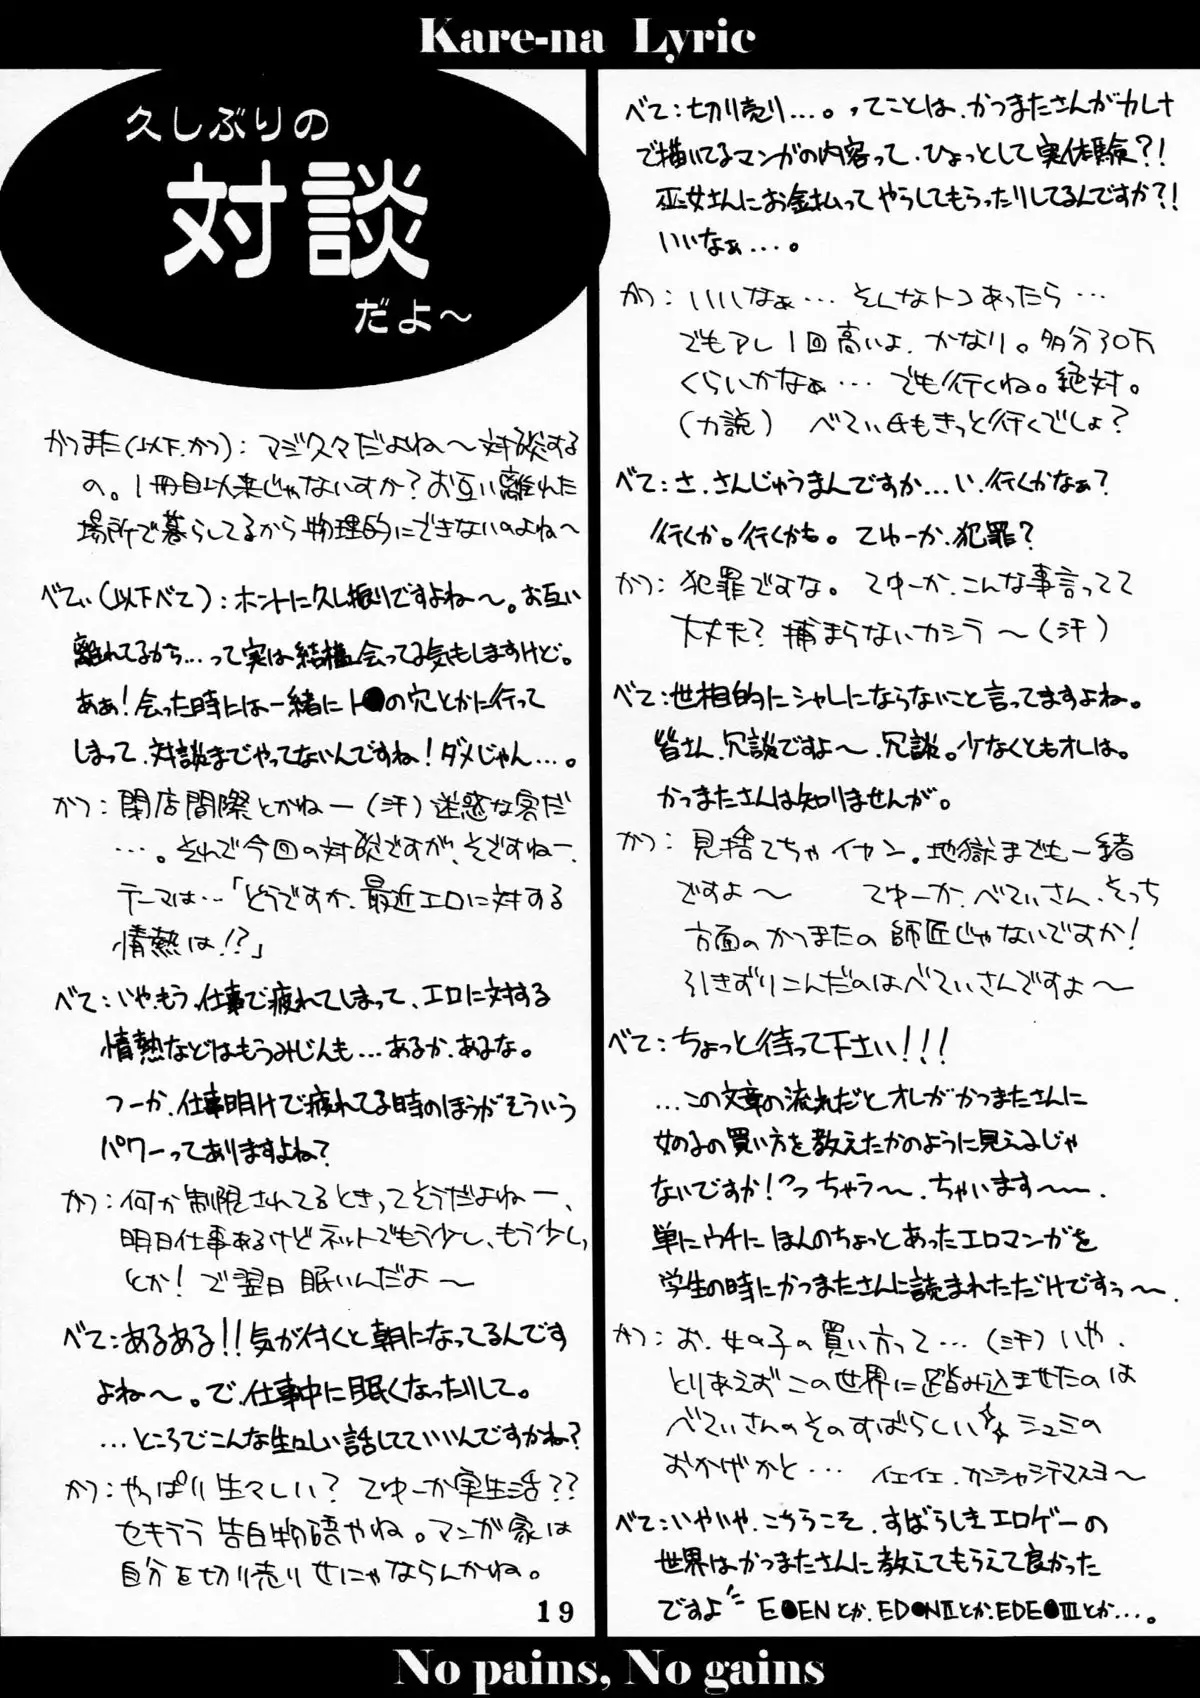 Kare-na Lyric
久しぶりの
対談
だよ～
かつまた(以下.かつ):マジ久々だよね～対談する
の。1冊目以来じゃないすか?お互い離れた
場所で暮らしてるから物理的にできないのよね～
べてぃ(以下べて):ホントに久し振りですよね～。お互い
離れてるから…って実は結構会ってる気もしますけど。
ああ!会った時には一緒にト●の穴とかに行って
しまって、対談までやってないんですね!ダメじゃん…。
かつ:閉店間際とかねー(汗)迷惑な客だ
…。そんで今回の対談ですが、そですねー、
テーマは…「どうですか、最近エロに対する
情熱は!?」
べて:いや、もう、仕事で疲れてしまって、エロに対する
情熱などはもうみじんも…あるか、あるな。
つーか、仕事明けで疲れてる時のほうがそういう
パワーってありますよね?
かつ:何か制限されてるときってそうだよねー、
明日仕事あるけどネットでもう少し、もう少し、
とか!で翌日眠いんだよ～
べて:あるある!!気が付くと朝になってるんです
よね～。で、仕事中に眠くなったりして。
…ところでこんな生々しい話してていいんですかね?
かつ:やっぱり生々しい?てゆーか実生活??
セキララ告白物語やね。マンガ家は
自分を切り売りせにゃならんかね。
19
べて:切り売り…。ってことは、かつまたさんがカレナ
で描いてるマンガの内容って、ひょっとして実体験?!
巫女さんにお金払ってやらしてもらったりしてるんですか?!
いいなぁ…。
かつ:いいなぁ…そんなトコあったら…
でもアレ1回高いよ、かなり。多分30万
くらいかなぁ…でも行くね。絶対。
(力説)べてぃ氏もきっと行くでしょ?
べて:さ、さんじゅうまんですか…い、行くかなぁ?
行くか。行くかも。てゆーか、犯罪?
かつ:犯罪ですな。てゆーか、こんな事言ってて
大丈夫?捕まらないカシラ～(汗)
べて:世相的にシャレにならないこと言ってますよね。
皆さん、冗談ですよ～、冗談。少なくともオレは。
かつまたさんは知りませんが。
かつ:見捨てちゃイヤン。地獄までも一緒
ですよ～てゆーか、べてぃさん、そっち
方面のかつまたの師匠じゃないですか!
引きずりこんだのはべてぃさんですよ～
べて:ちょっと待って下さい!!!
…この文章の流れだとオレがかつまたさんに
女の子の買い方を教えたかのように見えるじゃ
ないですか!?っちゃう～、ちゃいます～～、
単にウチにほんのちょっとあったエロマンガを
学生の時にかつまたさんに読まれただけですぅ～。
かつ:お、女の子の買い方って…(汗)いや、
とりあえずこの世界に踏み込ませたのは
べてぃさんのそのすばらしいシュミの
おかげかと…イエイエ、カンシャシテマスヨ～
べて:いやいや、こちらこそ、すばらしきエロゲーの
世界はかつまたさんに教えてもらえて良かった
ですよ E●ENとか、ED●NⅡとか、EDE●Ⅲとか…。
No pains, No gains